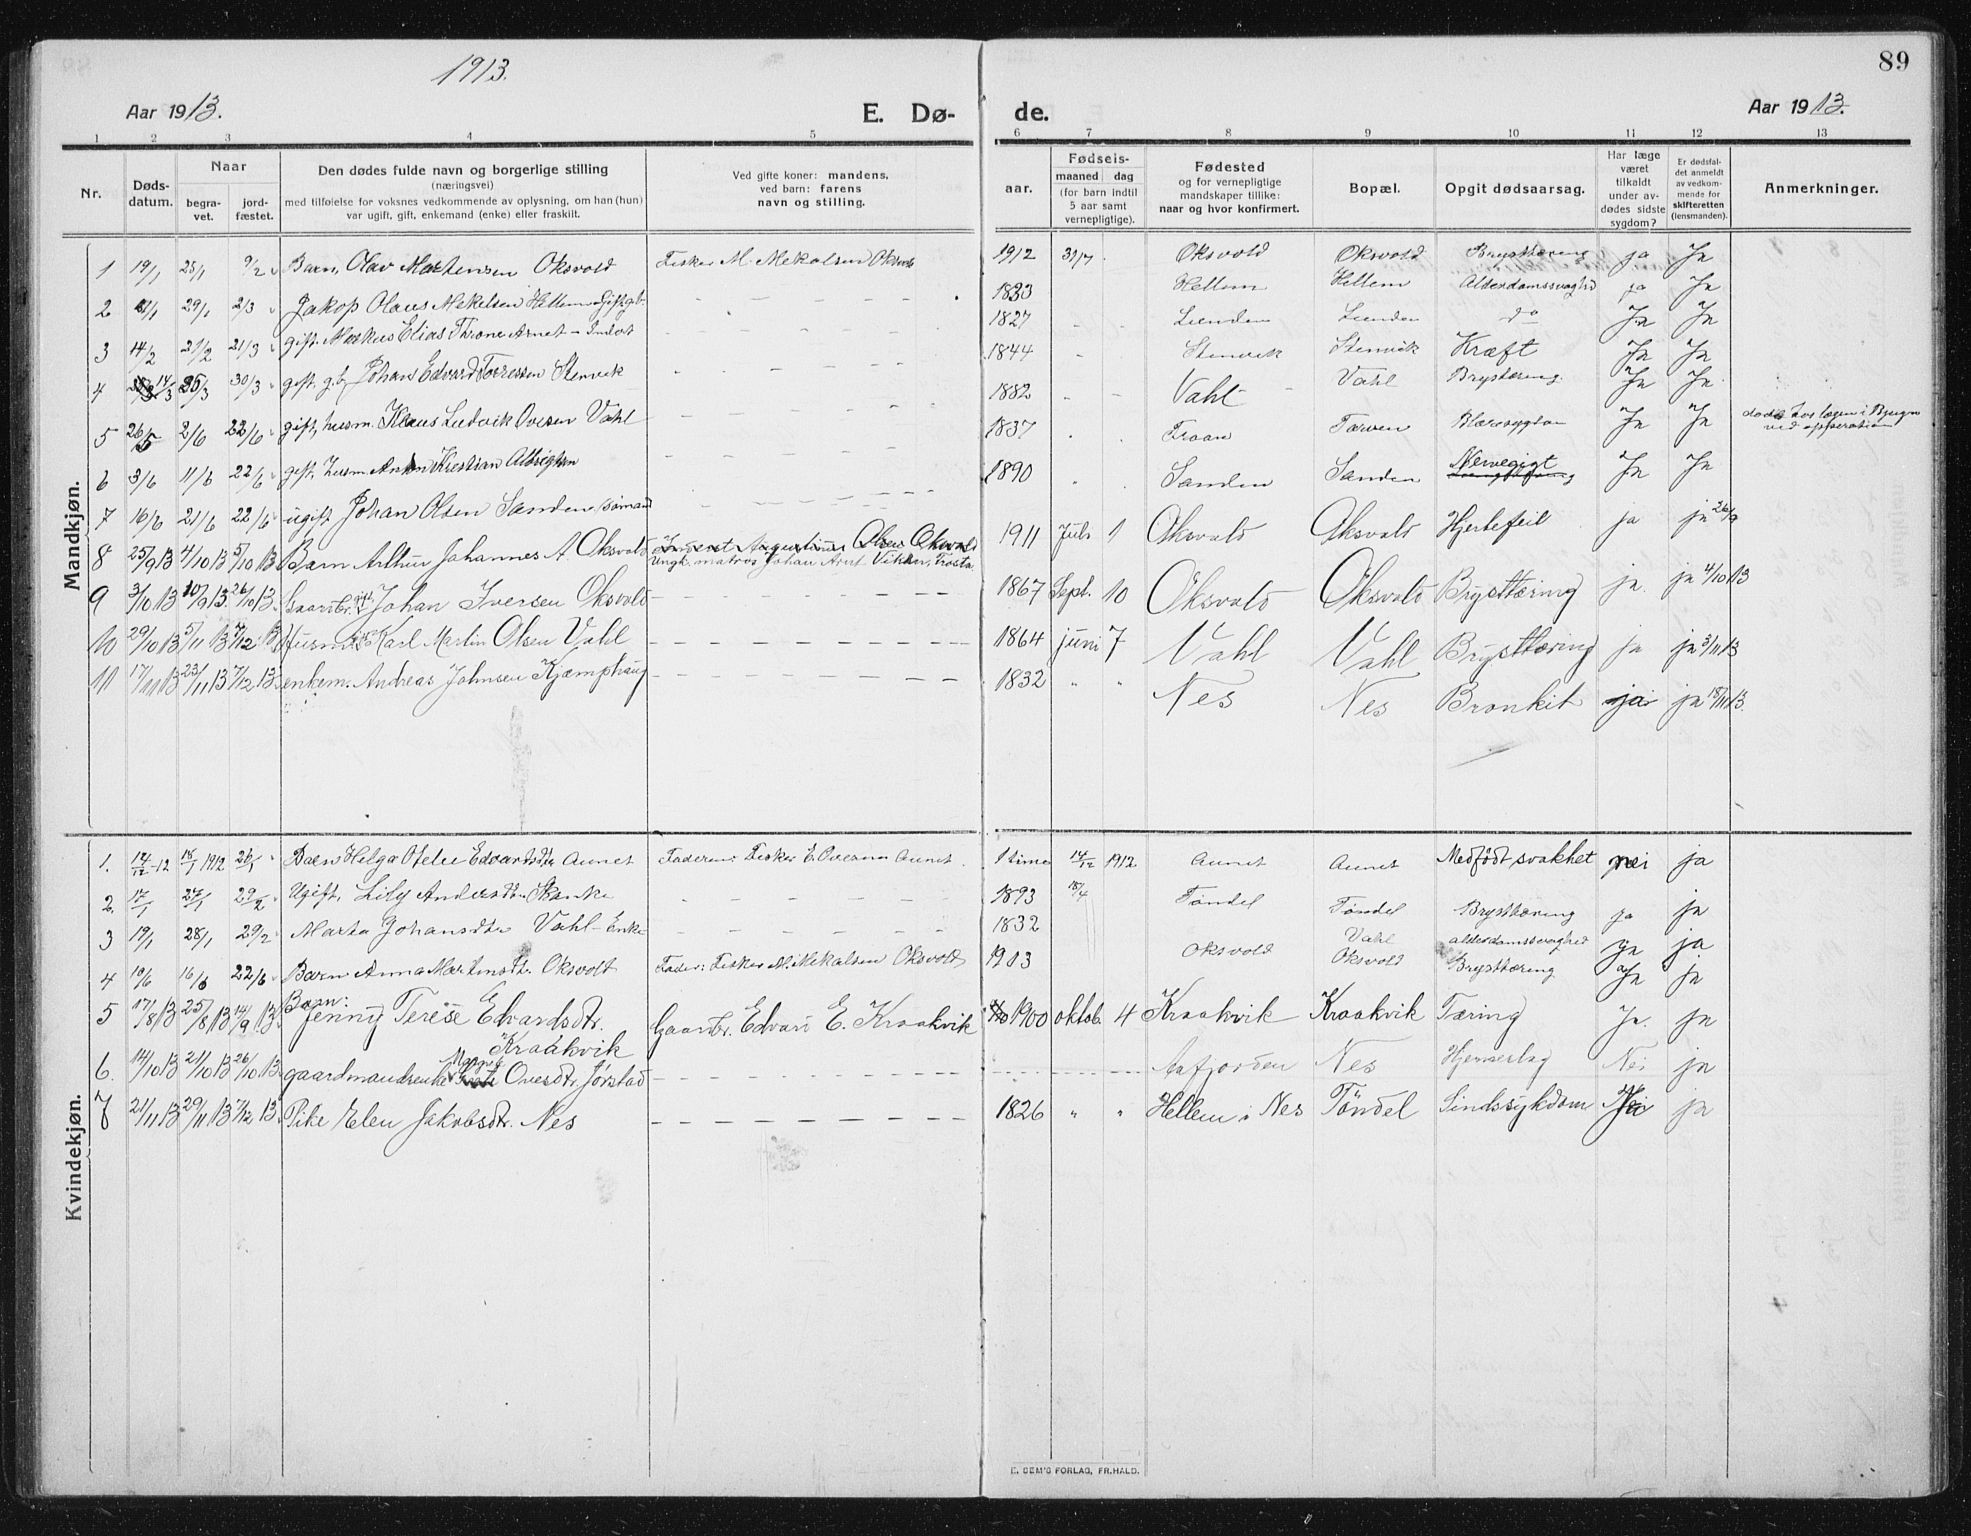 1913.
89
Aar 1913.
E. Dø-
de.
Aar 1913.
1 2 3 4 5 6 7 8 9 10 11 12 13
Nr.
Døds-
datum.
Naar
begra-
vet.
jord-
fæstet.
Den dødes fulde navn og borgerlige stilling
(næringsvei)
med tilføielse for voksnes vedkommende av oplysning, om han (hun)
var ugift, gift, enkemand (enke) eller fraskilt.
Ved gifte koner: mandens,
ved barn: farens
navn og stilling.
aar.
Fødsels-
maaned dag
(for barn indtil
5 aar samt
vernepligtige).
Fødested
og for vernepligtige
mandskaper tillike:
naar og hvor konfirmert.
Bopæl.
Opgit dødsaarsag.
Har læge
været
tilkaldt
under av-
dødes sidste
sygdom?
Er dødsfal-
det anmeldt
av vedkom-
mende for
skifteretten
(lensmanden).
Anmerkninger.
Mandkjøn.
1 19/1 25/1 9/2 Barn, Olav Martensen Oksvold Fisker M. Mekalsen Oksvold 1912 31/7 Oksvold Oksvold Brysttæring ja Ja
2 21/1 29/1 2/3 Jakop Olaus Mekelsen Hellem 1833 Hellem Hellem Alderdomssvaghed ja Ja
3 14/2 27/2 21/3 gift. Markus Elias Throne Arnet - Inderst 1827 Lienden Lienden do Ja Ja
4 14/3 25/3 30/3 gift. gb. Johan Edvard Torressen Stenvik 1844 Stenvik Stenvik Kræft Ja Ja
5 26/5 2/6 22/6 gift, husm. Klaus Ludvik Ovesen Vahl 1882 Vahl Vahl Brysttæring Ja Ja
6 3/6 11/6 22/6 gift, husm. Anton Kristian Albrigtsen 1837 Froan Tarven Blæresygdom Ja Ja døde hos lægen i Bjugn
ved opperation
7 16/6 21/6 22/6 ugift Johan Olsen Sanden, sømand 1890 Sanden Sanden Nervegigt Ja Ja
8 25/9 13 4/10 13 5/10 13 Barn Arthur Johannes A. Oksvold Inderst Augustinus Olsen Oksvold
Ungk. matros Johan Arnt Vikan, Frosta. 1911 Juli 1 Oksvold Oksvold Hjertefeil ja ja 26/9
9 3/10 13 10/9 13. 26/10 13. Gaardbr. gift. Johan Iversen Oksvold 1867 Sept. 10 Oksvold Oksvold Brysttæring ja. ja 4/10 13
10 29/10 13 5/11 13 7/12 13 Husm. Karl Martin Olsen Vahl 1864 juni 7 Vahl Vahl Brysttæring ja ja 3/11 13
11 17/11 13 23/11 13 7/12 13. enkem. Andreas Johnsen Kjæmphaug 1832 " " Nes Nes Bronkit ja ja 18/11 13.
Kvindekjøn.
1. 14/12-12 18/1 1912 26/1 Barn Helga Ofelie Edvardsdtr Aunet Faderen: Fisker E. Ovesen Aunet. 1 time 14/12 1912 Aunet Aunet Medfødt svakhet nei ja
2. 17/1 27/1 29/2 Ugift, Lily Andersdtr. Skanke 1893 18/4 Tøndel Tøndel Brysttæring ja ja
3 19/1 28/1 29/2 Marta Johansdtr Vahl - Enke 1832 Vahl alderdomssvaghed ja ja
4 10/6 16/6 22/6 Barn Anna Martinsdtr. Oksvolt Fader: Fisker M. Mekalsen Oksvold 1903 Oksvold Oksvold Brysttæring Ja Ja
5 17/8 13 25/8 13 14/9 13. Barn: Jenny Terese Edvardsdtr.
Kraakvik Gaardbr. Edvard E. Kraakvik 1900 oktob. 4 Kraakvik Kraakvik Tæring Ja. ja
6. 14/10 13 21/10 13 26/10 13 gaardmandsenke Ovesdtr. Jørstad Aafjorden Nes Hjerneslag Nei ja
7 21/11 13 29/11 13 7/12 13. Pike Elen Jakobsdtr. Nes 1826 " " Hellem i Nes Tøndel Sindssykdom Nei ja
E. SEM'S FORLAG, FR.HALD.